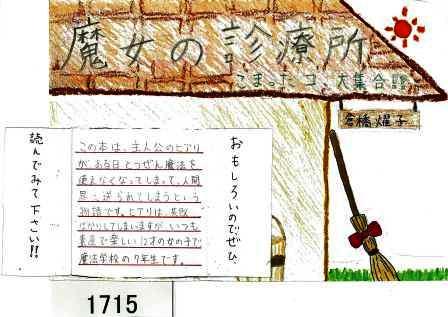 魔女の診療所
こまったコ、大集合
倉橋燿子
おもしろいのでぜひ
この本は、主人公のヒアリ
が、ある日とつぜん魔法を
使えなくなってしまって、人間
界に送られてしまうという
物語です。ヒアリは、失敗
ばかりしてしまいますが、いつも
素直で楽しい12才の女の子で
魔法学校の7年生です。
読んでみて下さい!!
1715